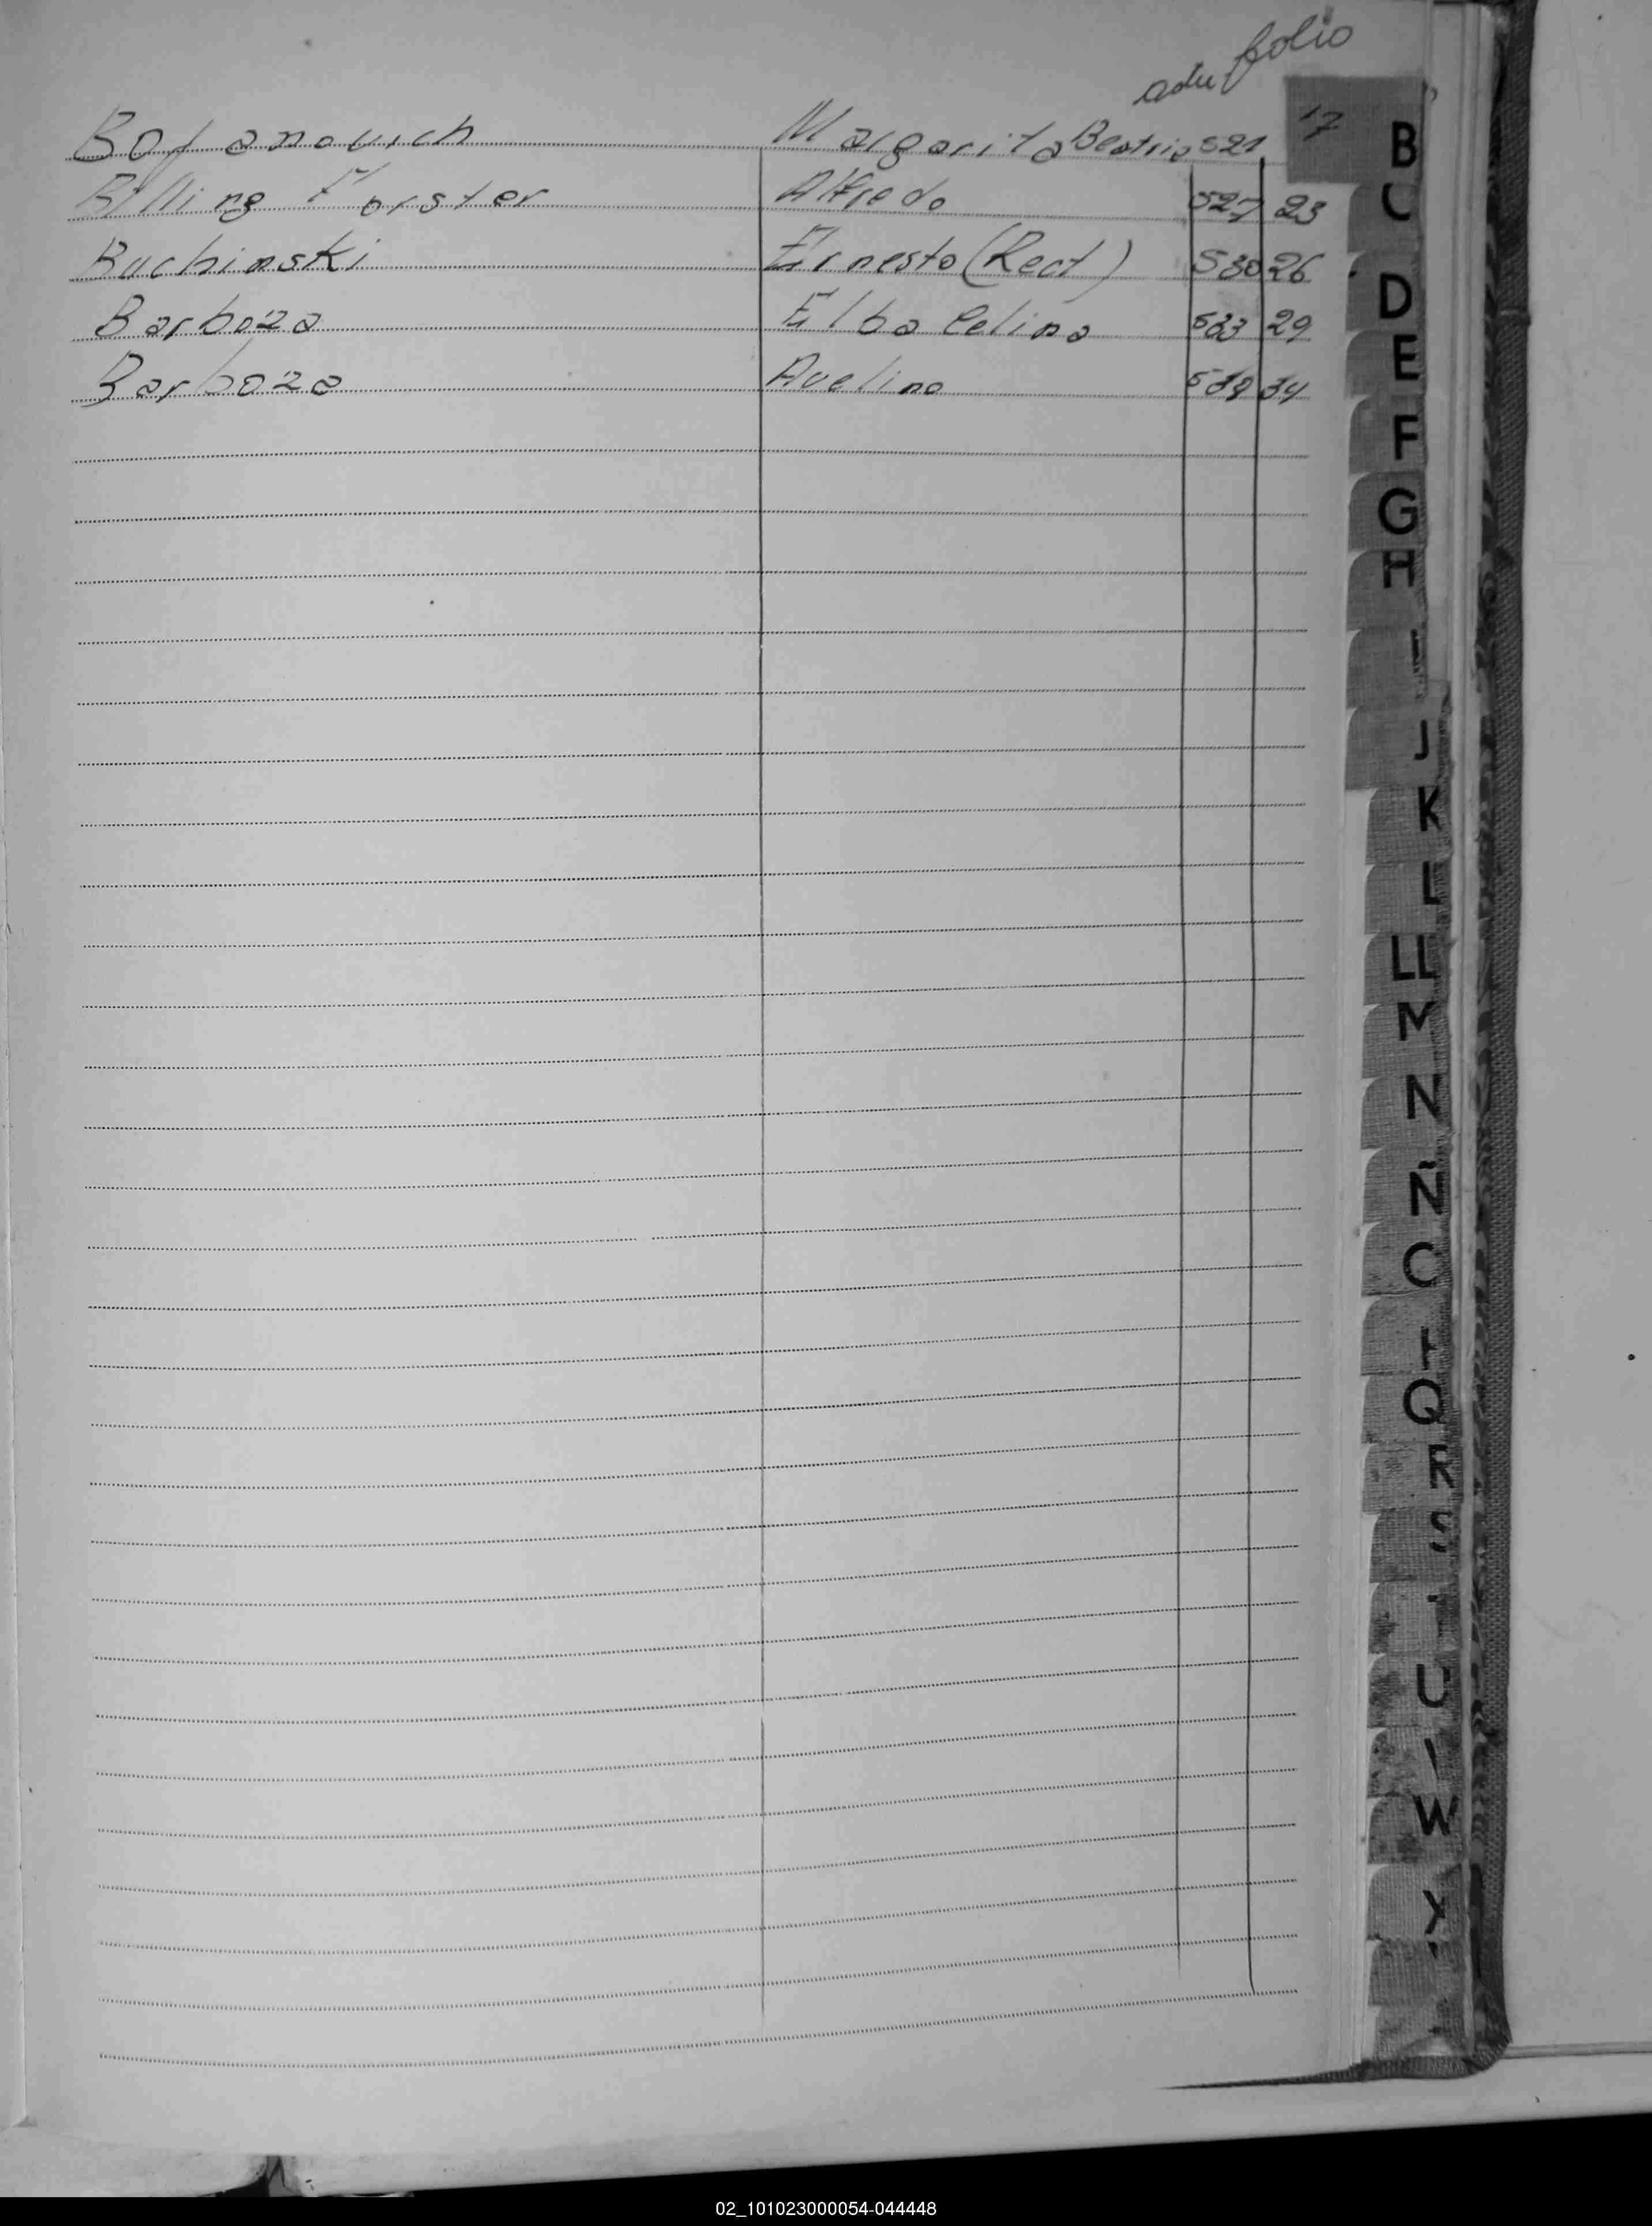 actu folio
Bojanovich Margarita Beatriz 521 17
Billing Forster Alfredo 527 23
Buchinski Ernesto (Rect) 530 26
Barboza Elba Celina 533 29
Barboza Avelino 538 34
B
C
D
E
F
G
H
I
J
K
L
LL
M
N
Ñ
O
P
Q
R
S
T
U
V
W
Y
02_101023000054-044448